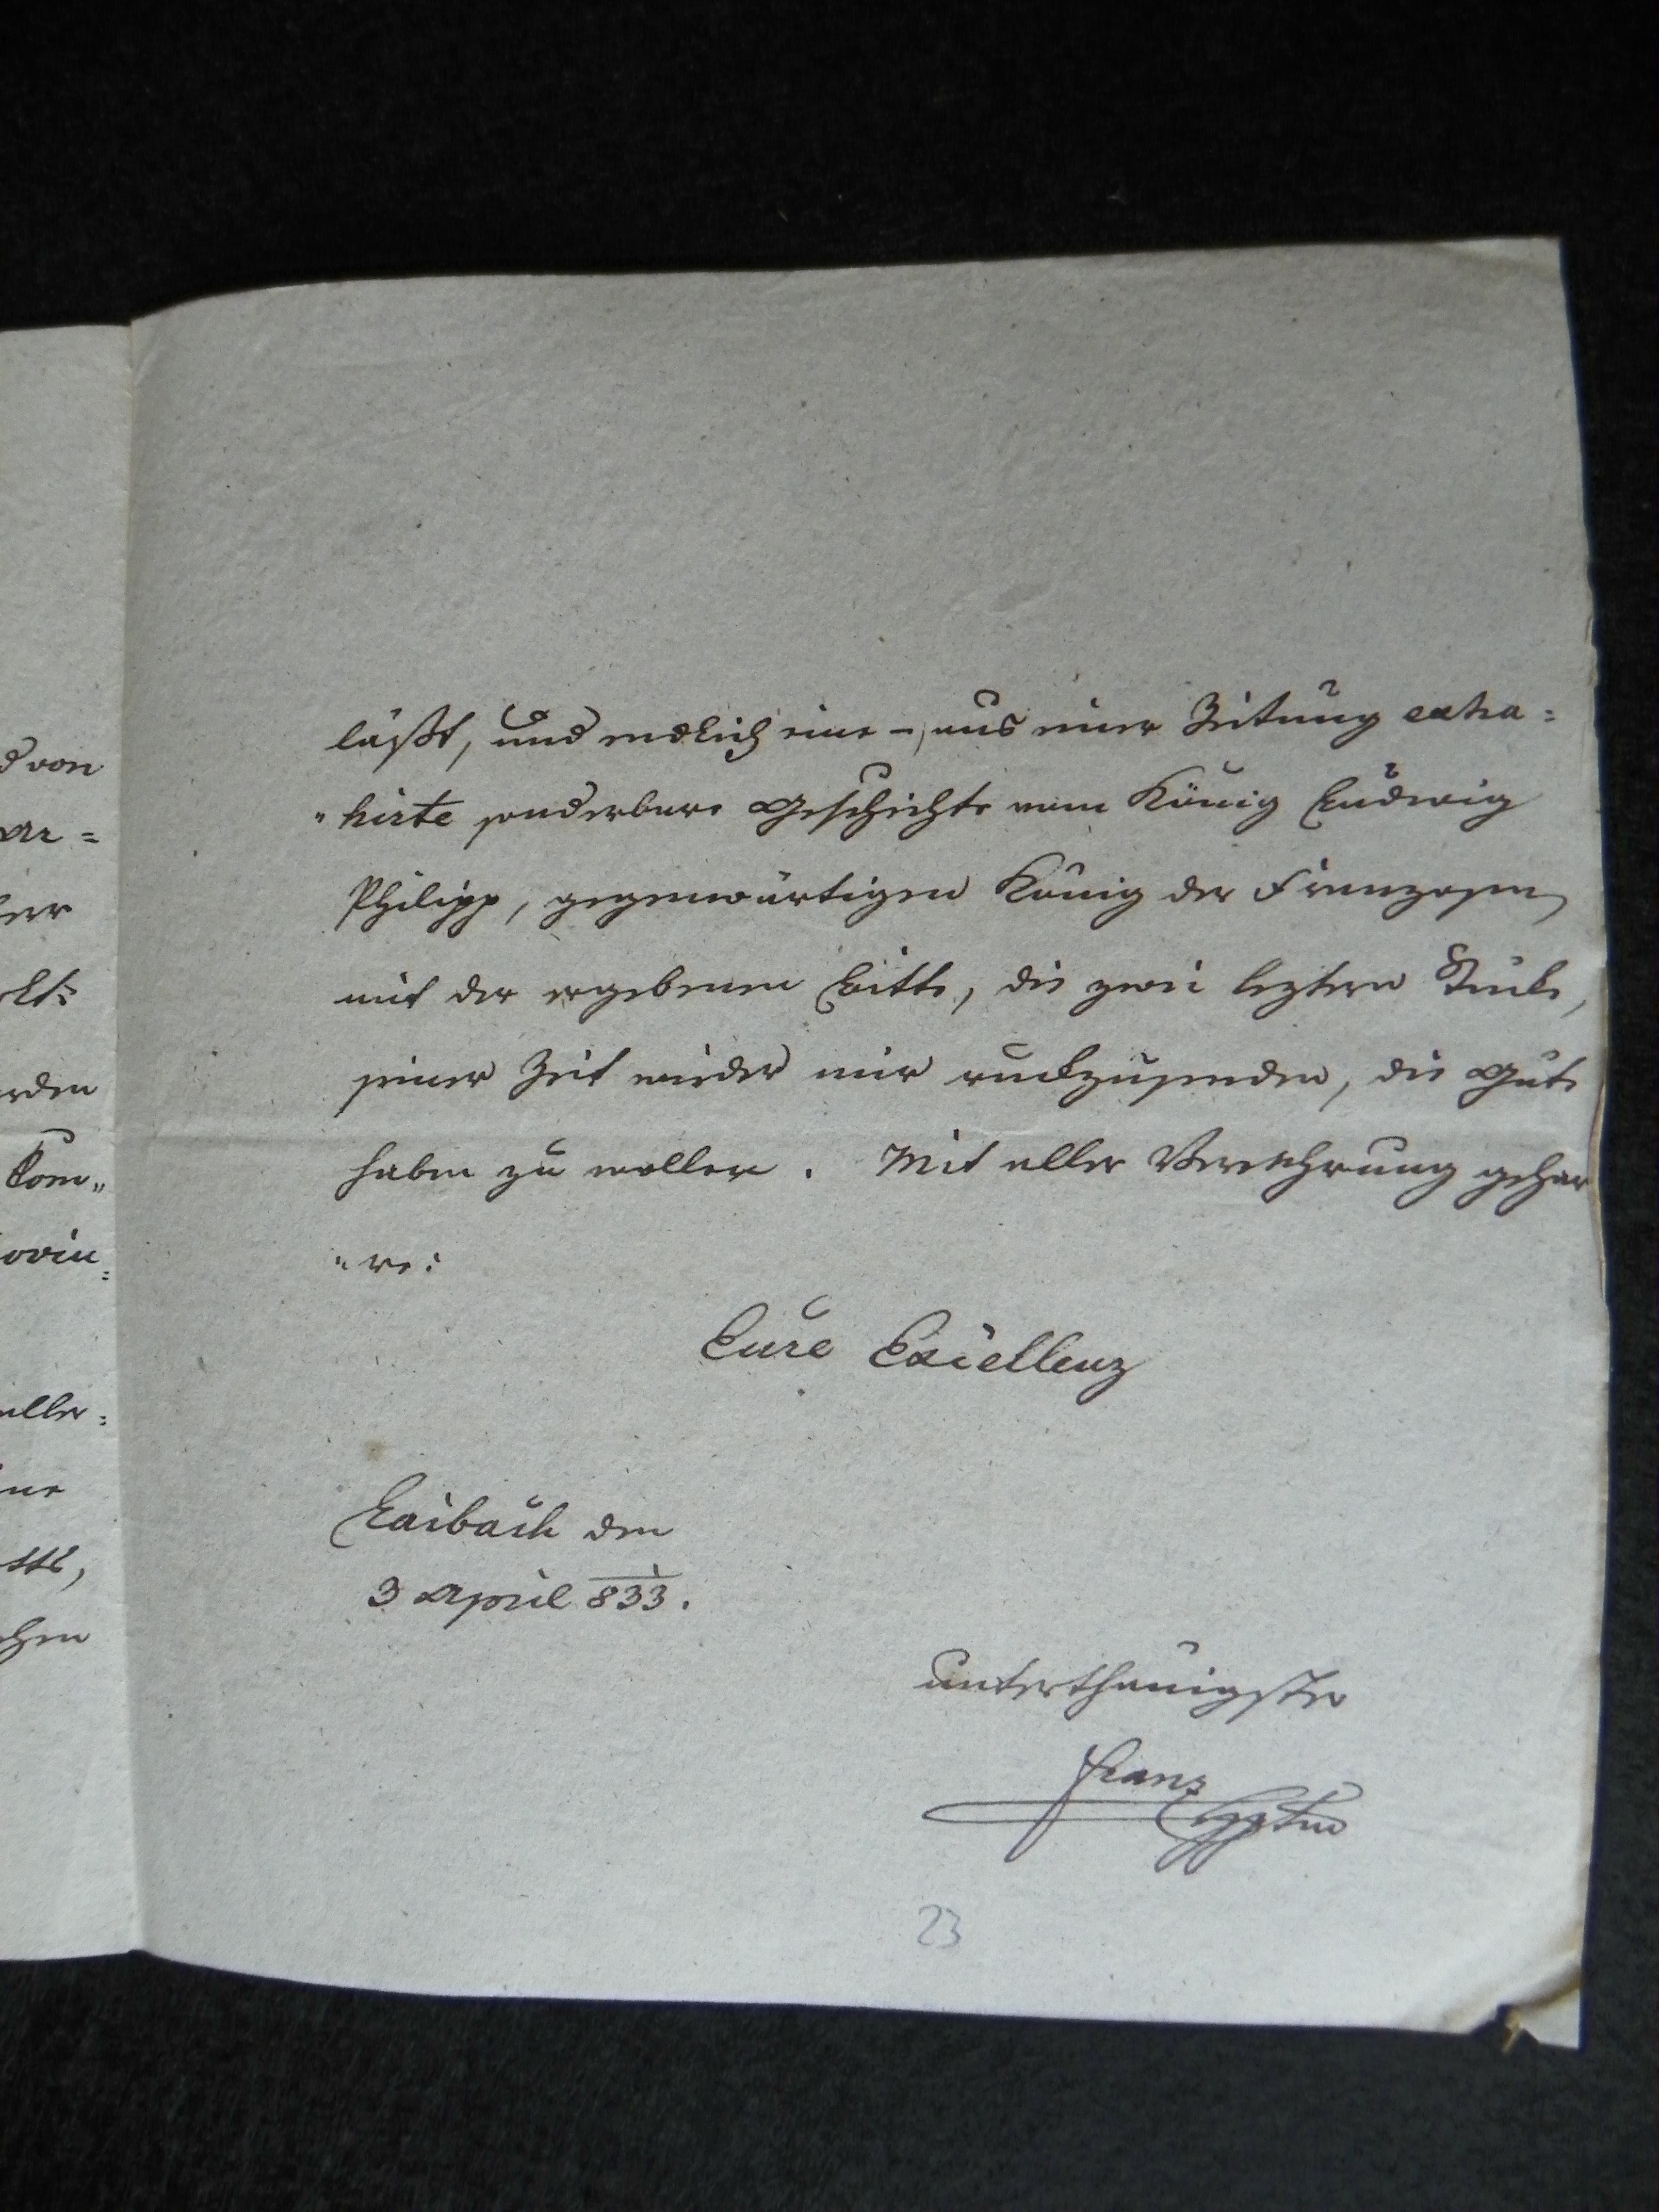 d von
ar=
err
rden
Com„
ovin=
aller=
ine
chen
läßt, und endlich eine –, aus einer Zeitung extra=
„hirte sonderbare Geschichte vom König Ludwig
Philipp, gegenwärtigen König der Franzosen,
mit der ergebenen Bitte, die zwei leztern Stücke,
seiner Zeit wieder mir ruckzusenden, die Güte
haben zu wollen. Mit aller Verehrung gehar
„re:
Eure Excellenz
Laibach den
3 April 833.
unterthänigster
Franz
23